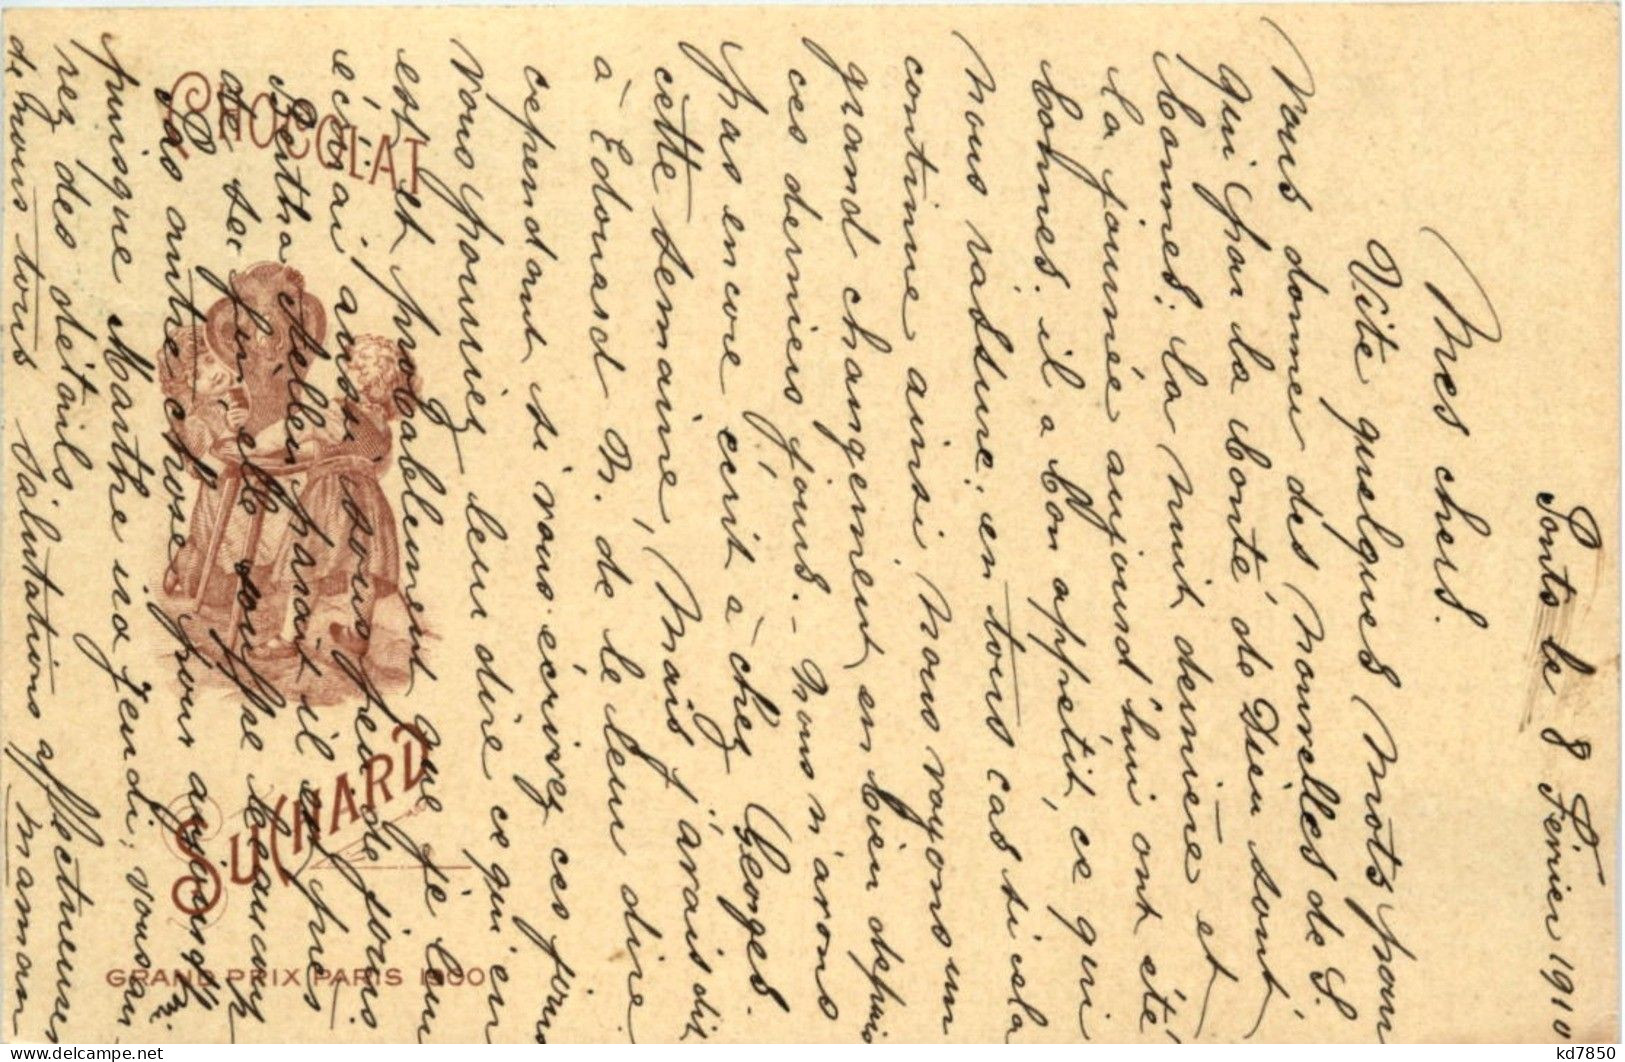 Ponts le 8 Février 1910
Mes chers.
Vite quelques mots pour
vous donner dés nouvelles de S.
qui par la bonté de Dieu sont
bonnes; la nuit dernière et
la journée aujourd'hui ont été
bonnes. il a bon appetit, ce qui
nous rassure; en tous cas si cela
continue ainsi nous voyons un
grand changement en bien depuis
ces derniers jours. – nous n'avons
pas encore écrit à chez Georges.
cette semaine, mais j'avais dit
à Edouard M. de le leur dire
cependant si vous écrivez ces jours
vous pouvez leur dire ce qui en
est et probablement que je leur
écrirai aussi sous peu de jours
Bertha celle parait il
de se elle souffre beaucoup
pas autre chose pour aujourd'
puisque Marthe ira Jeudi; vous au
rez des détails.
de nous tous salutations affectueuses
maman
CHOCOLAT
SUCHARD
GRAND PRIX PARIS 1900
kd7850